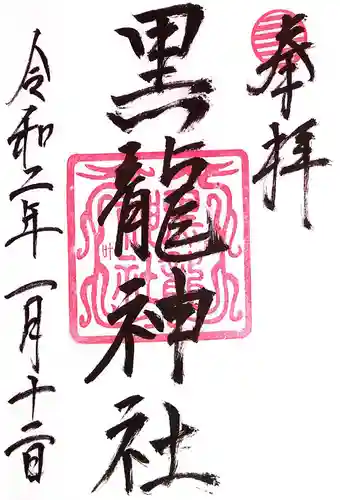 奉拝
黒龍神社
令和二年一月十二日